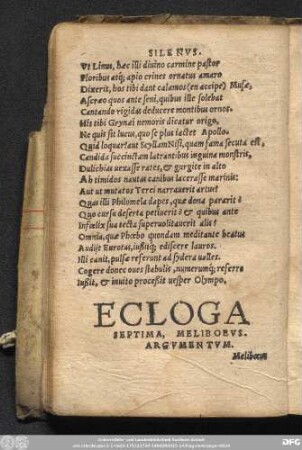 SILENVS.
Vt Linus, hæc illi diuino carmine pastor
Floribus atq; apio crines ornatus amaro
Dixerit, hos tibi dant calamos (en accipe) Musæ,
Ascræo quos ante seni, quibus ille solebat
Cantando rigidas deducere montibus ornos.
His tibi Grynæi nemoris dicatur origo,
Ne quis sit lucus, quo se plus iactet Apollo.
Quid loquar? aut Scyllam Nisi, quam fama secuta est,
Candida succinctam latrantibus inguina monstris,
Dulichias uexasse rates, & gurgite in alto
Ah timidos nautas canibus lacerasse marinis:
Aut ut mutatos Terei narrauerit artus?
Quas illi Philomela dapes, quæ dona pararit?
Quo cursu deserta petiuerit? & quibus ante
Infœlix sua tecta superuolitauerit alis?
Omnia, quæ Phœbo quondam meditante beatus
Audijt Eurotas, iussitq; ediscere lauros.
Ille canit, pulsæ referunt ad sydera ualles.
Cogere donec oues stabulis, numerumq; referre
Iussit, & inuito processit uesper Olympo.
ECLOGA
SEPTIMA, MELIBOEVS.
ARGVMENTVM.
Meliboeus